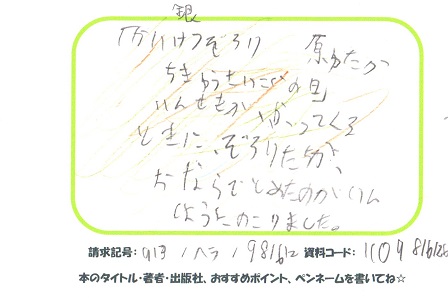 銀
「かいけつぞろり 原ゆたか
ちきゅうさいごの日」
いんせきが むかってくる
ときに、ぞろりたちが、
おならでとめたのがいん
しょうにのこりました。
請求記号: 913 / ハラ / 981612 資料コード: 1109
本のタイトル・著者・出版社、おすすめポイント、ペンネームを書いてね☆